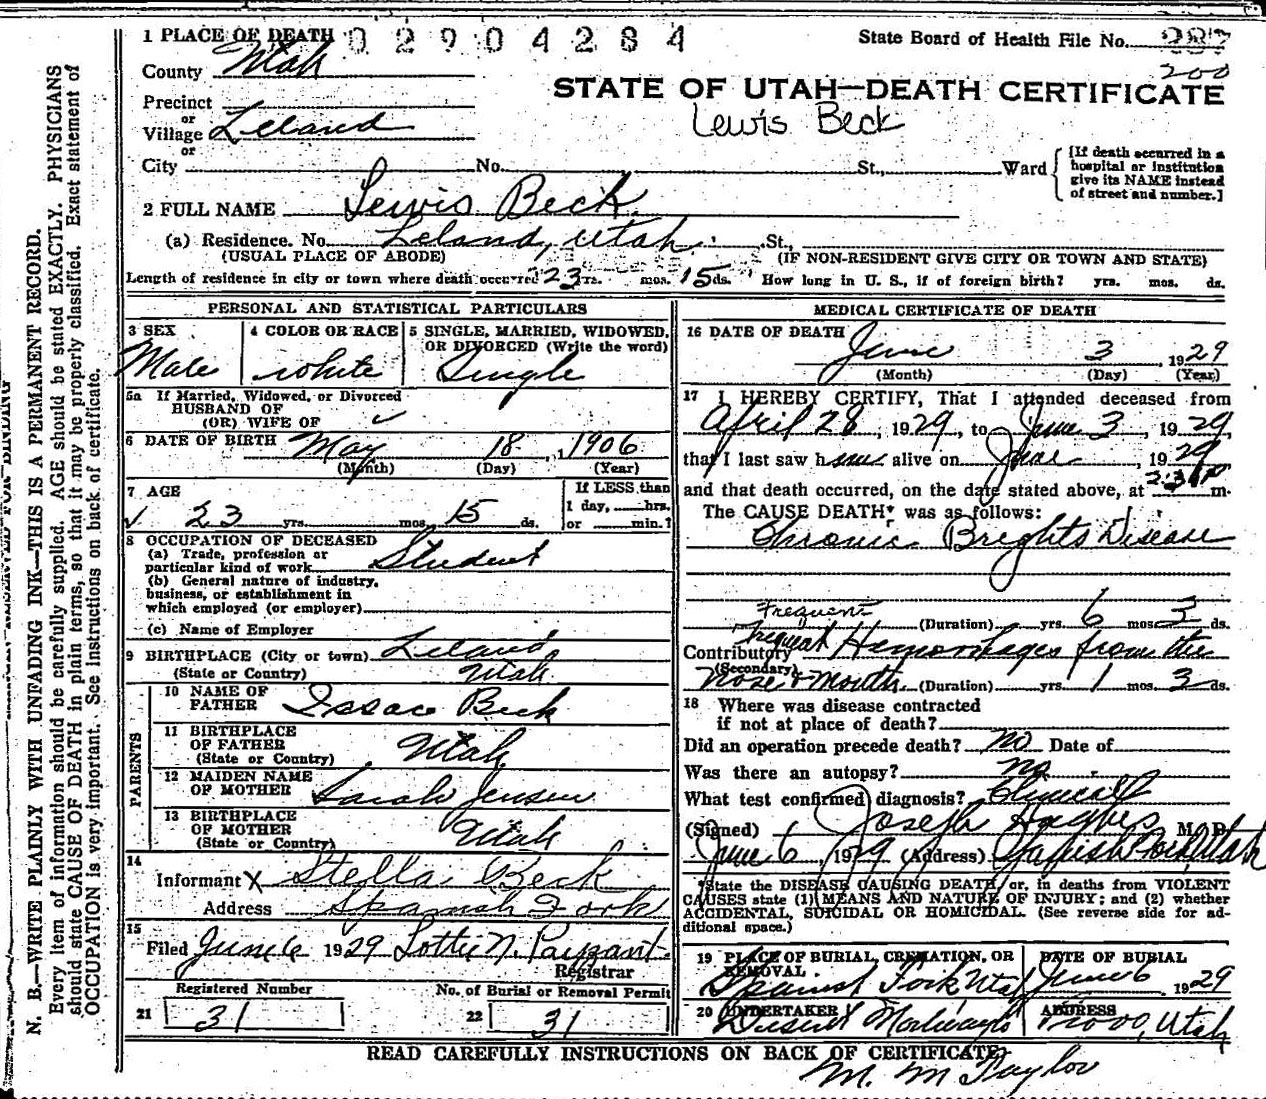 1 PLACE OF DEATH 02904284
State Board of Health File No. 287
200
County Utah
STATE OF UTAH—DEATH CERTIFICATE
Lewis Beck
Precinct
or
Village Leland
or
City No. St., Ward
[If death occurred in a hospital or institution give its NAME instead of street and number.]
2 FULL NAME Lewis Beck
(a) Residence. No. Leland, Utah St.,
(USUAL PLACE OF ABODE) (IF NON-RESIDENT GIVE CITY OR TOWN AND STATE)
Length of residence in city or town where death occurred 23 yrs. mos. 15 ds. How long in U. S., if of foreign birth? yrs. mos. ds.
PERSONAL AND STATISTICAL PARTICULARS
3 SEX Male
4 COLOR OR RACE white
5 SINGLE, MARRIED, WIDOWED, OR DIVORCED (Write the word) Single
5a If Married, Widowed, or Divorced
HUSBAND OF
(OR) WIFE OF
6 DATE OF BIRTH May 18, 1906
(Month) (Day) (Year)
7 AGE
23 yrs. mos. 15 ds.
If LESS than
1 day, hrs.
or min.?
8 OCCUPATION OF DECEASED
(a) Trade, profession or
particular kind of work Student
(b) General nature of industry,
business, or establishment in
which employed (or employer)
(c) Name of Employer
9 BIRTHPLACE (City or town) Leland
(State or Country) Utah
PARENTS
10 NAME OF
FATHER Issac Beck
11 BIRTHPLACE
OF FATHER Utah
(State or Country)
12 MAIDEN NAME
OF MOTHER Sarah Jensen
13 BIRTHPLACE
OF MOTHER Utah
(State or Country)
14
Informant X Stella Beck
Address Spanish Fork
15
Filed June 6 1929 Lottie N. Payzant
Registrar
Registered Number No. of Burial or Removal Permit
21 31 22 31
MEDICAL CERTIFICATE OF DEATH
16 DATE OF DEATH June 3, 1929
(Month) (Day) (Year)
17 I HEREBY CERTIFY, That I attended deceased from
April 28, 1929, to June 3, 1929,
that I last saw him alive on June, 1929
and that death occurred, on the date stated above, at m.
The CAUSE DEATH* was as follows:
Chronic Brights Disease
Frequent
(Duration) yrs. 6 mos. 3 ds.
Contributory Frequent Hemorrhages from the
(Secondary)
Nose & Mouth. (Duration) yrs. 1 mos. 3 ds.
18 Where was disease contracted
if not at place of death?
Did an operation precede death? no Date of
Was there an autopsy? no
What test confirmed diagnosis? Clinical
(Signed) Joseph Hughes M. D.
June 6, 1929 (Address) Spanish Fork, Utah
*State the DISEASE CAUSING DEATH, or, in deaths from VIOLENT
CAUSES state (1) MEANS AND NATURE OF INJURY; and (2) whether
ACCIDENTAL, SUICIDAL OR HOMICIDAL. (See reverse side for ad-
ditional space.)
19 PLACE OF BURIAL, CREMATION, OR
REMOVAL.
Spanish Fork Utah
DATE OF BURIAL
June 6 1929
20 UNDERTAKER
Deseret Mortuary
ADDRESS
Provo, Utah
READ CAREFULLY INSTRUCTIONS ON BACK OF CERTIFICATE
M. M Taylor
N. B.—WRITE PLAINLY WITH UNFADING INK—THIS IS A PERMANENT RECORD.
Every item of information should be carefully supplied. AGE should be stated EXACTLY. PHYSICIANS
should state CAUSE OF DEATH in plain terms, so that it may be properly classified. Exact statement of
OCCUPATION is very important. See instructions on back of certificate.